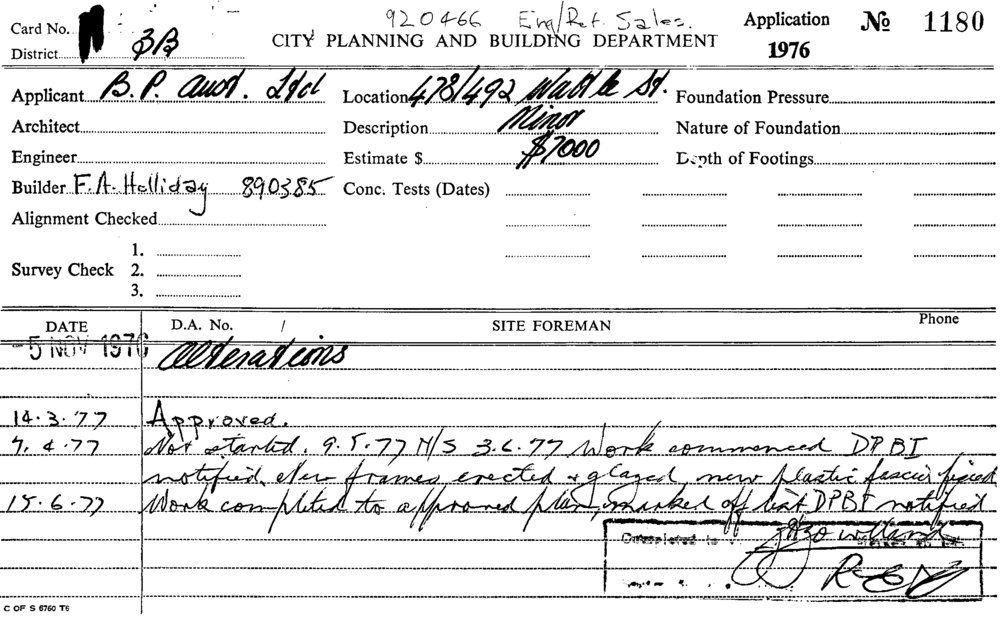 920466 Eng/Ret. Sales. Application No 1180
Card No.
District 3B CITY PLANNING AND BUILDING DEPARTMENT 1976
Applicant B.P. Aust. Ltd Location 478/492 Wattle St. Foundation Pressure
Architect Description Minor Nature of Foundation
Engineer Estimate $ $7000 Depth of Footings
Builder F.A. Holliday 890385 Conc. Tests (Dates)
Alignment Checked
1.
Survey Check 2.
3.
DATE D.A. No. / SITE FOREMAN Phone
-5 NOV 1976 Alterations
14.3.77 Approved.
7.4.77 Not started. 9.5.77 N/S 3.6.77 Work commenced DPBI
notified, New frames erected & glazed, new plastic fascia fixed
15.6.77 Work completed to approved plan, marked off list DPBI notified
Completed to
C OF S 6760 T6